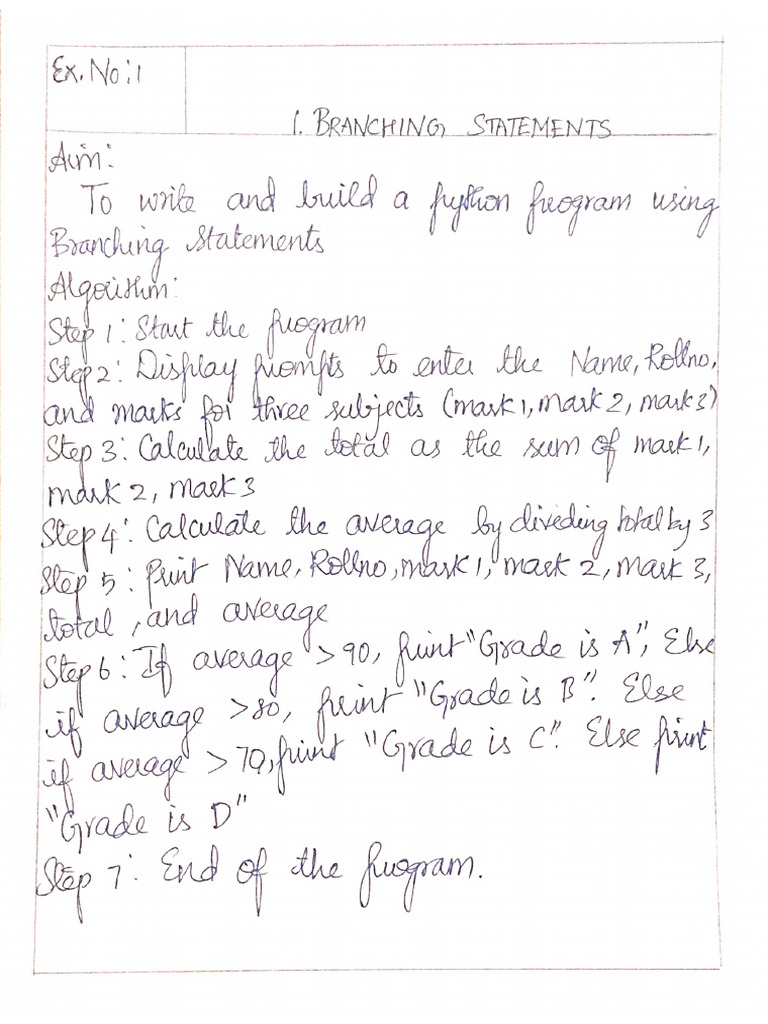 Ex. No: 1
1. BRANCHING STATEMENTS
Aim:
To write and build a python program using
Branching Statements
Algorithm:
Step 1: Start the program
Step 2: Display prompts to enter the Name, Rollno,
and marks for three subjects (mark 1, mark 2, mark 3)
Step 3: Calculate the total as the sum of mark 1,
mark 2, mark 3
Step 4: Calculate the average by dividing total by 3
Step 5: Print Name, Rollno, mark 1, mark 2, mark 3,
total, and average
Step 6: If average > 90, print "Grade is A", Else
if average > 80, print "Grade is B". Else
if average > 70, print "Grade is C". Else print
"Grade is D"
Step 7: End of the program.